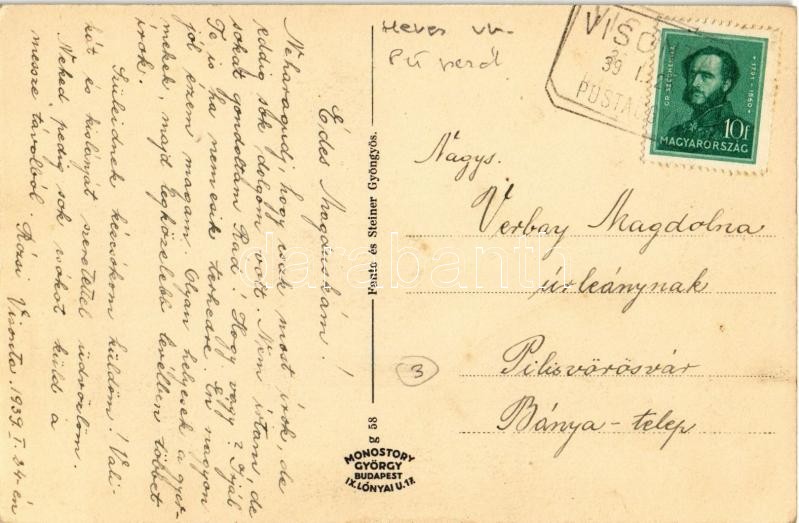 Heves vm.
VISO
39 I.
POSTA
GR. SZÉCHENYI I. 1791-1860
10f
MAGYARORSZÁG
Édes Magduskám!
Neharagudj, hogy csak most írok, de
eddig sok dolgom volt. Nem írtam, de
sokat gondoltam Rád! Hogy vagy? Írjál
Te is ha nemesik terhedre. Én nagyon
jól érzem magam. Olyan helyesek a gyer-
mekek, majd legközelebb levélben többet
irok.
Szüleidnek kézcsókom küldöm! Vali-
kát és kislányát szeretettel üdvözlöm.
Neked pedig sok csókot küld a
messze távolból. Rózsi Visonta. 1939. I. 24-én
Fanto és Steiner Gyöngyös.
g 58
MONOSTORY
GYÖRGY
BUDAPEST
IX. LÓNYAI U. 17.
3
Nagys.
Verbay Magdolna
úrleánynak
Pilisvörösvár
Bánya-telep
darabanth